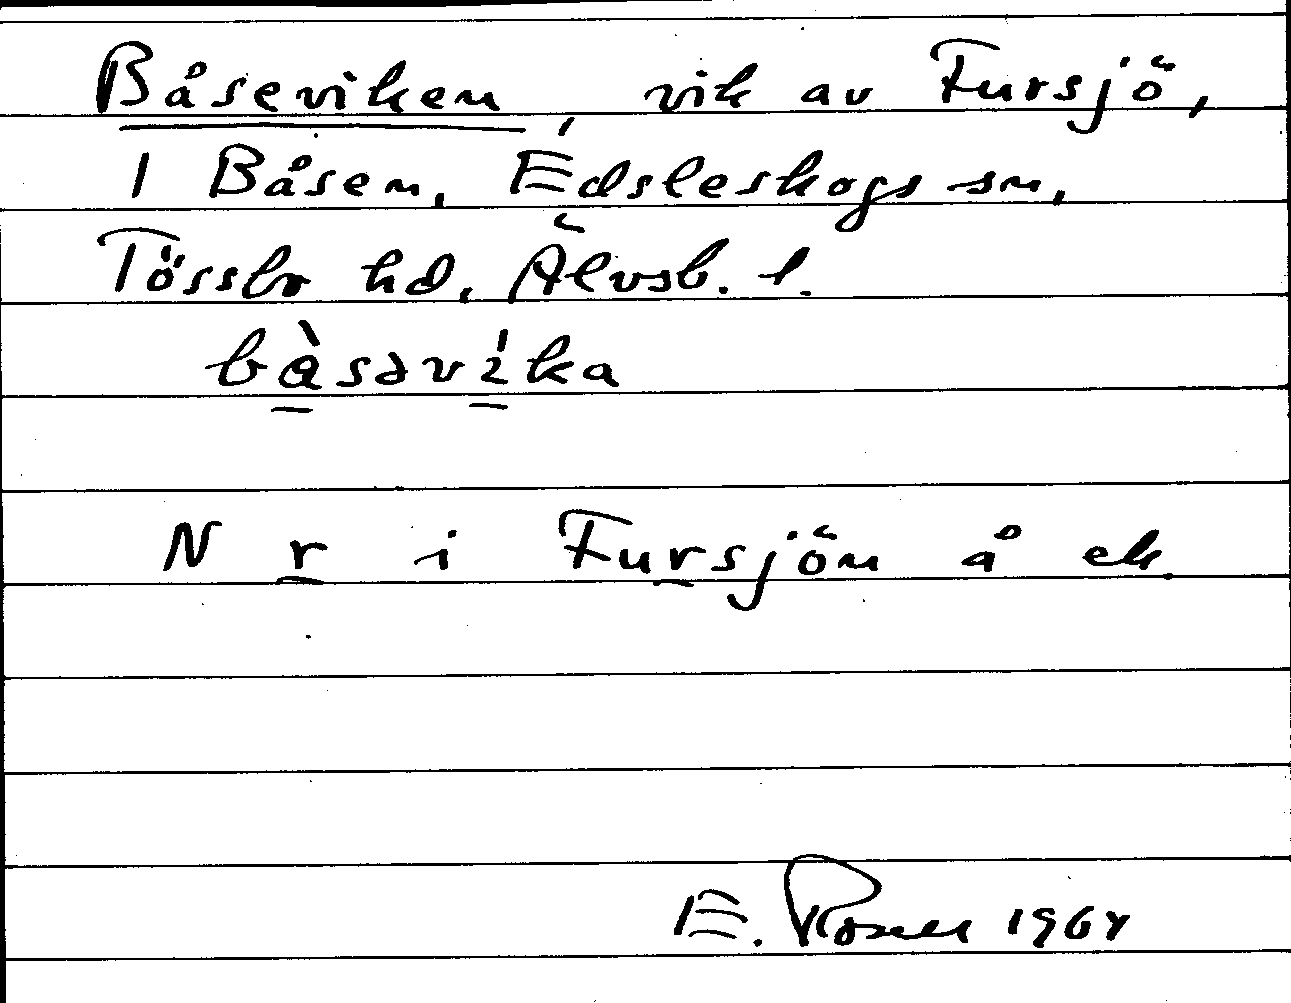 Båseviken, vik av Fursjö,
1 Båsen, Edsleskogs sn,
Tössbo hd, Älvsb. l.
bå̀səvíka
N r i Fursjön å ek.
E. 1964